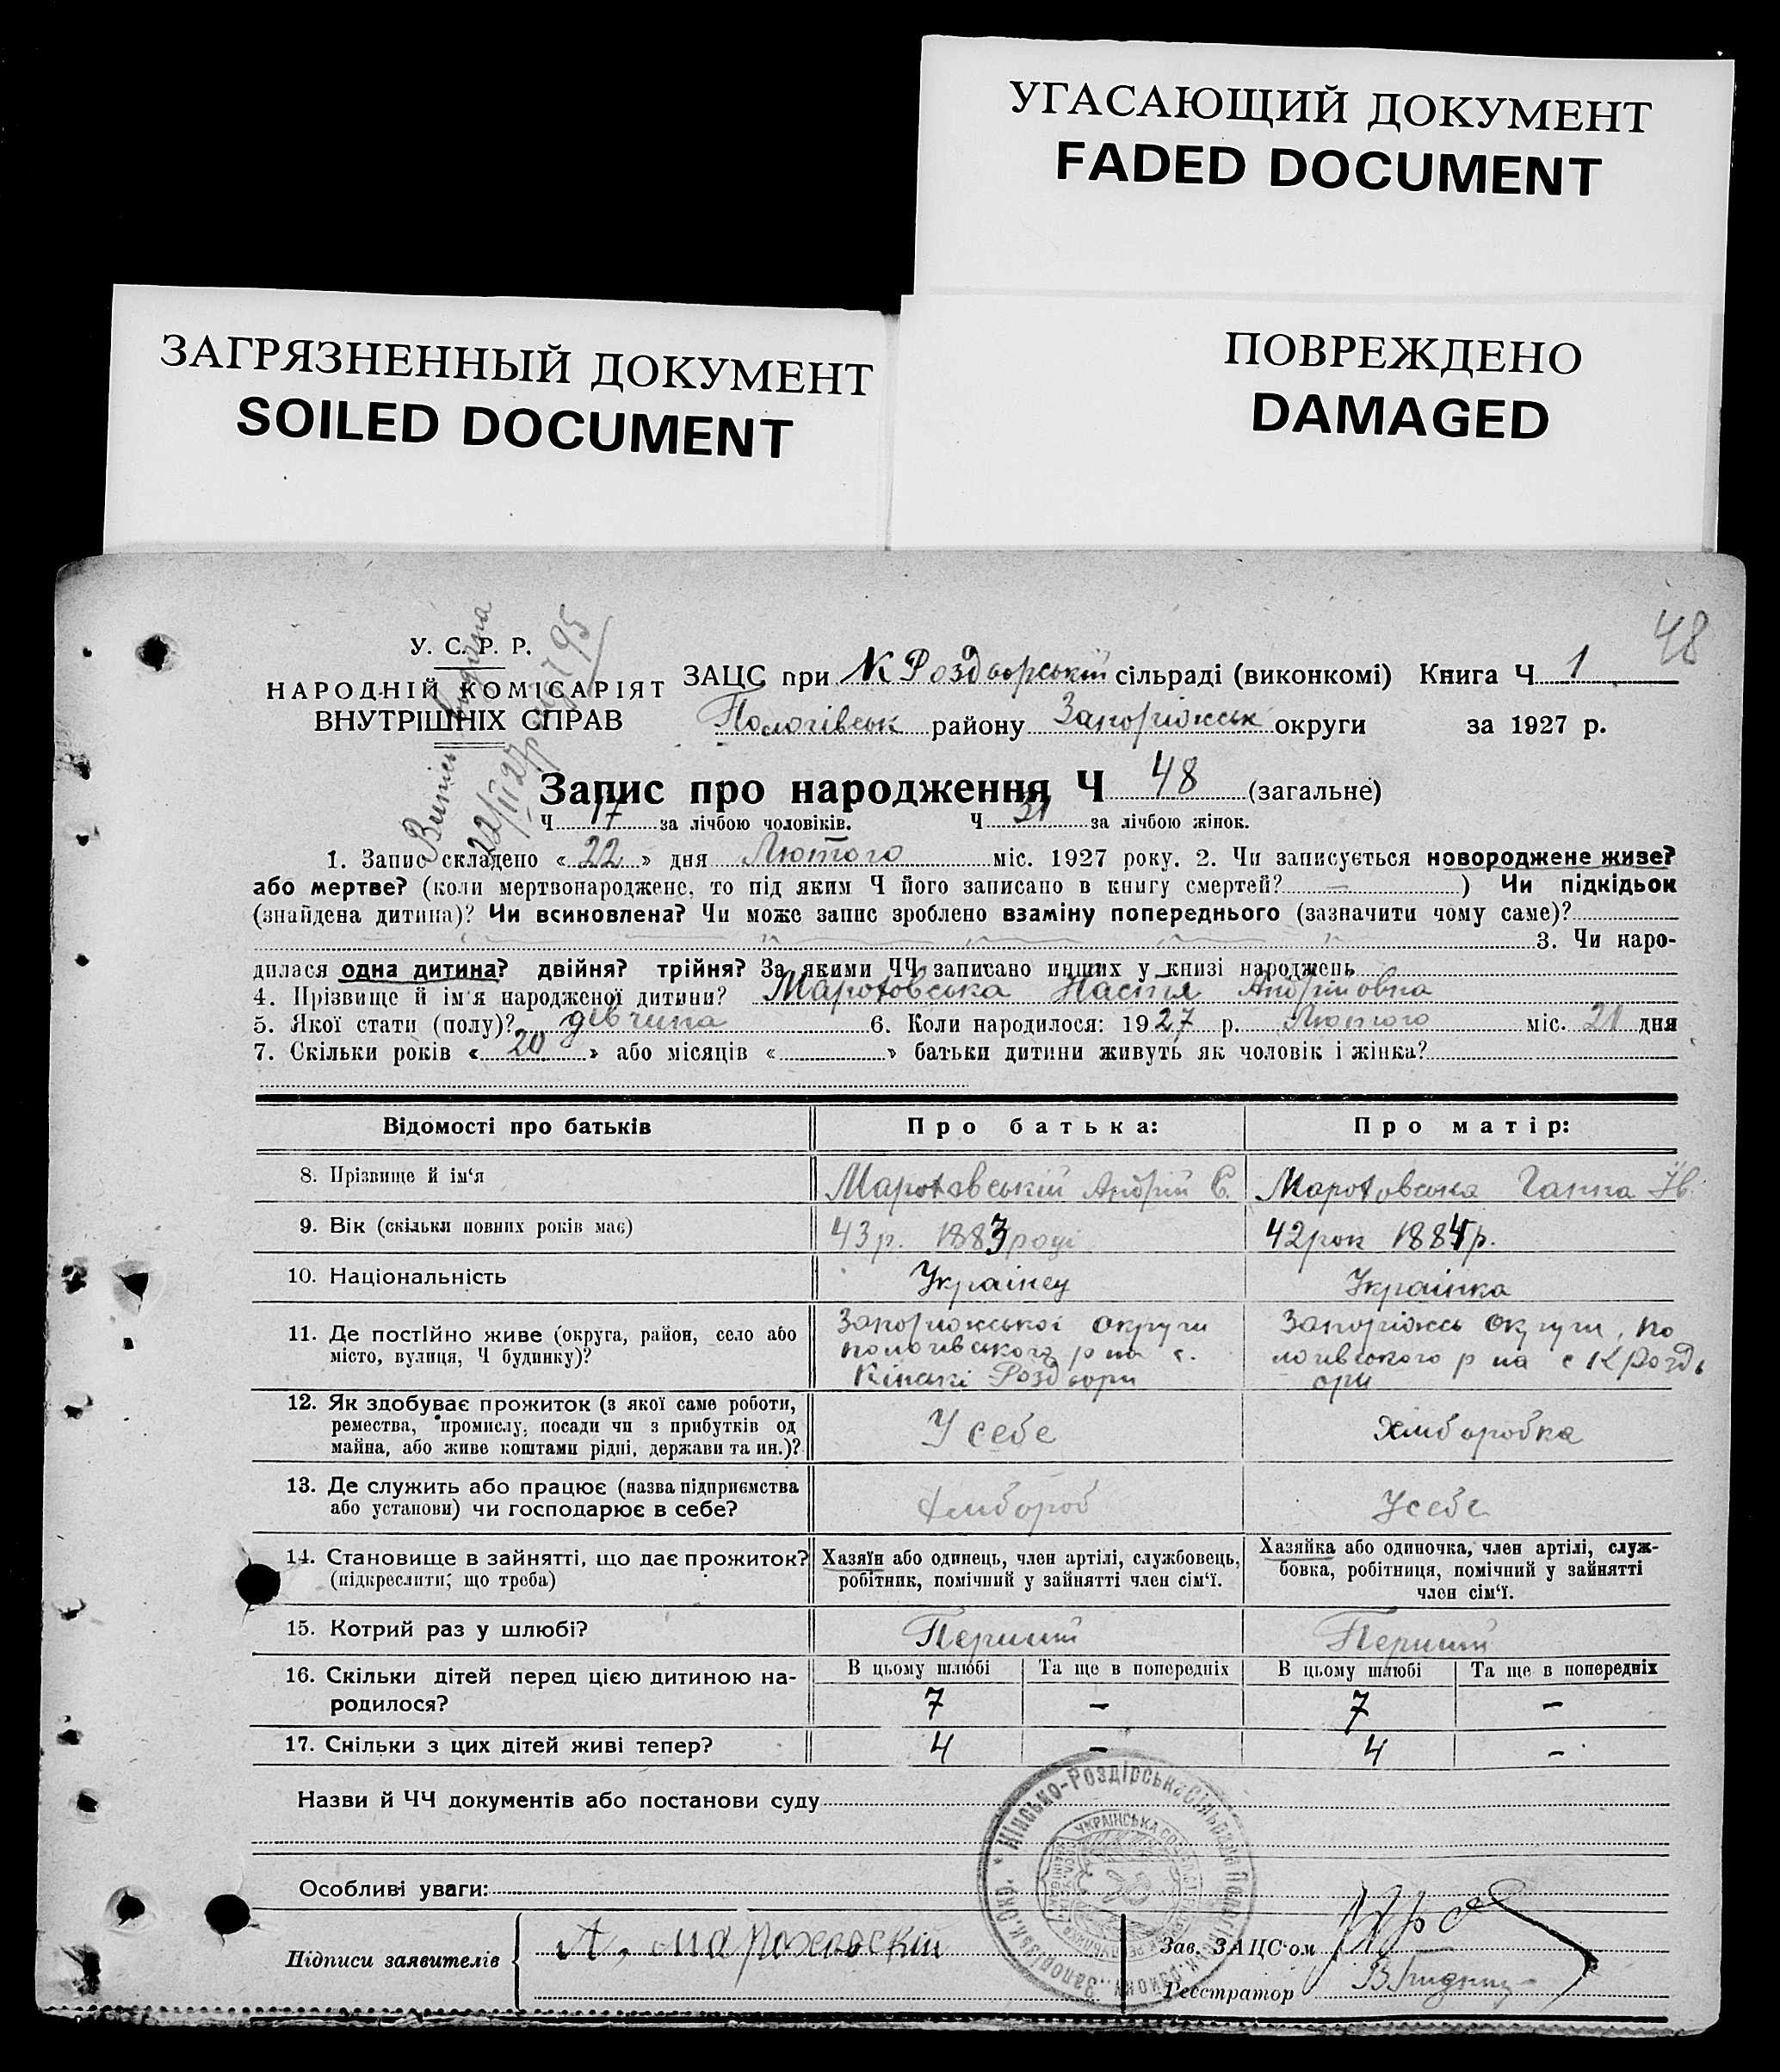 УГАСАЮЩИЙ ДОКУМЕНТ
FADED DOCUMENT
ЗАГРЯЗНЕННЫЙ ДОКУМЕНТ
SOILED DOCUMENT
ПОВРЕЖДЕНО
DAMAGED
48
У. С. Р. Р.
НАРОДНІЙ КОМІСАРІЯТ
ВНУТРІШНІХ СПРАВ
Випись видана
22/II 27р
ЗАЦС при К Роздорській сільраді (виконкомі) Книга Ч 1
Пологівськ району Запоріжськ округи за 1927 р.
Запис про народження Ч 48 (загальне)
Ч 17 за лічбою чоловіків. Ч 31 за лічбою жінок.
1. Запис складено « 22 » дня Лютого міс. 1927 року. 2. Чи записується новороджене живе?
або мертве? (коли мертвонароджене, то під яким Ч його записано в книгу смертей? — ) Чи підкідьок
(знайдена дитина)? Чи всиновлена? Чи може запис зроблено взаміну попереднього (зазначити чому саме)?
3. Чи наро-
дилася одна дитина? двійня? трійня? За якими ЧЧ записано инших у книзі народжень
4. Прізвище й ім'я народженої дитини? Мароховська Настя Андріївна
5. Якої стати (полу)? дівчина 6. Коли народилося: 1927 р. Лютого міс. 21 дня
7. Скільки років « 20 » або місяців « » батьки дитини живуть як чоловік і жінка?
Відомості про батьків Про батька: Про матір:
8. Прізвище й ім'я Мароховській Андрій Є. Мароховська Ганна Ів.
9. Вік (скільки повних років має) 43 р. 1883 році 42 рок 1884 р.
10. Національність Українец Українка
11. Де постійно живе (округа, район, село або
місто, вулиця, Ч будинку)?
Запоріжської округи
пологівського р на с.
Кінські Роздори
Запоріжсь округи, по
логівського р на с К Розд
ори
12. Як здобуває прожиток (з якої саме роботи,
ремества, промислу, посади чи з прибутків од
майна, або живе коштами рідні, держави та ин.)?
У себе Хліборобка
13. Де служить або працює (назва підприємства
або установи) чи господарює в себе?
Хлібороб У себе
14. Становище в зайнятті, що дає прожиток?
(підкреслити, що треба)
Хазяїн або одинець, член артілі, службовець,
робітник, помічний у зайнятті член сім'ї.
Хазяйка або одиночка, член артілі, служ-
бовка, робітниця, помічний у зайнятті
член сім'ї.
15. Котрий раз у шлюбі? Перший Перший
16. Скільки дітей перед цією дитиною на-
родилося?
В цьому шлюбі Та ще в попередніх В цьому шлюбі Та ще в попередніх
7 — 7 —
17. Скільки з цих дітей живі тепер? 4 — 4 —
Назви й ЧЧ документів або постанови суду
Кінсько-Роздірська Сільрада
Особливі уваги:
Підписи заявителів А. Мароховский
Зав. ЗАЦС'ом
Реєстратор